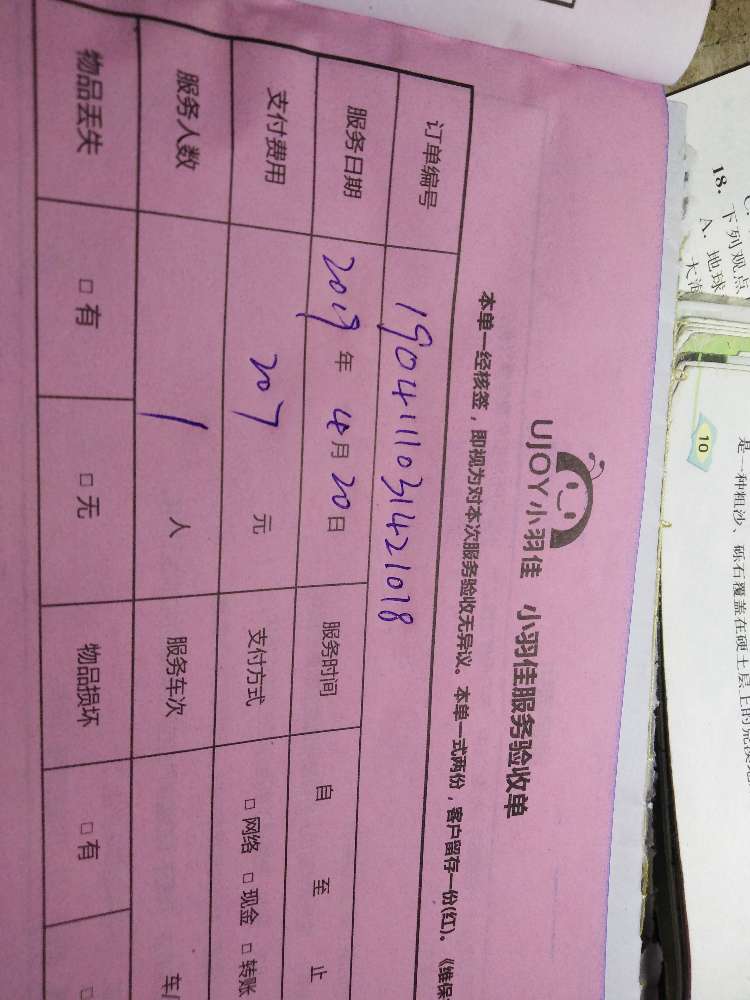 UJOY小羽佳 小羽佳服务验收单
本单一经核签，即视为对本次服务验收无异议。本单一式两份，客户留存一份(红)。《维保
订单编号 1904111031421018
服务日期 2019年 4月20日 服务时间 自 至 止
支付费用 207 元 支付方式 □网络 □现金 □转账
服务人数 1 人 服务车次 车/
物品丢失 □有 □无 物品损坏 □有 □
18. 下列观点
A. 地球
大海
10
是一种粗沙、砾石覆盖在硬土层上的荒漠地